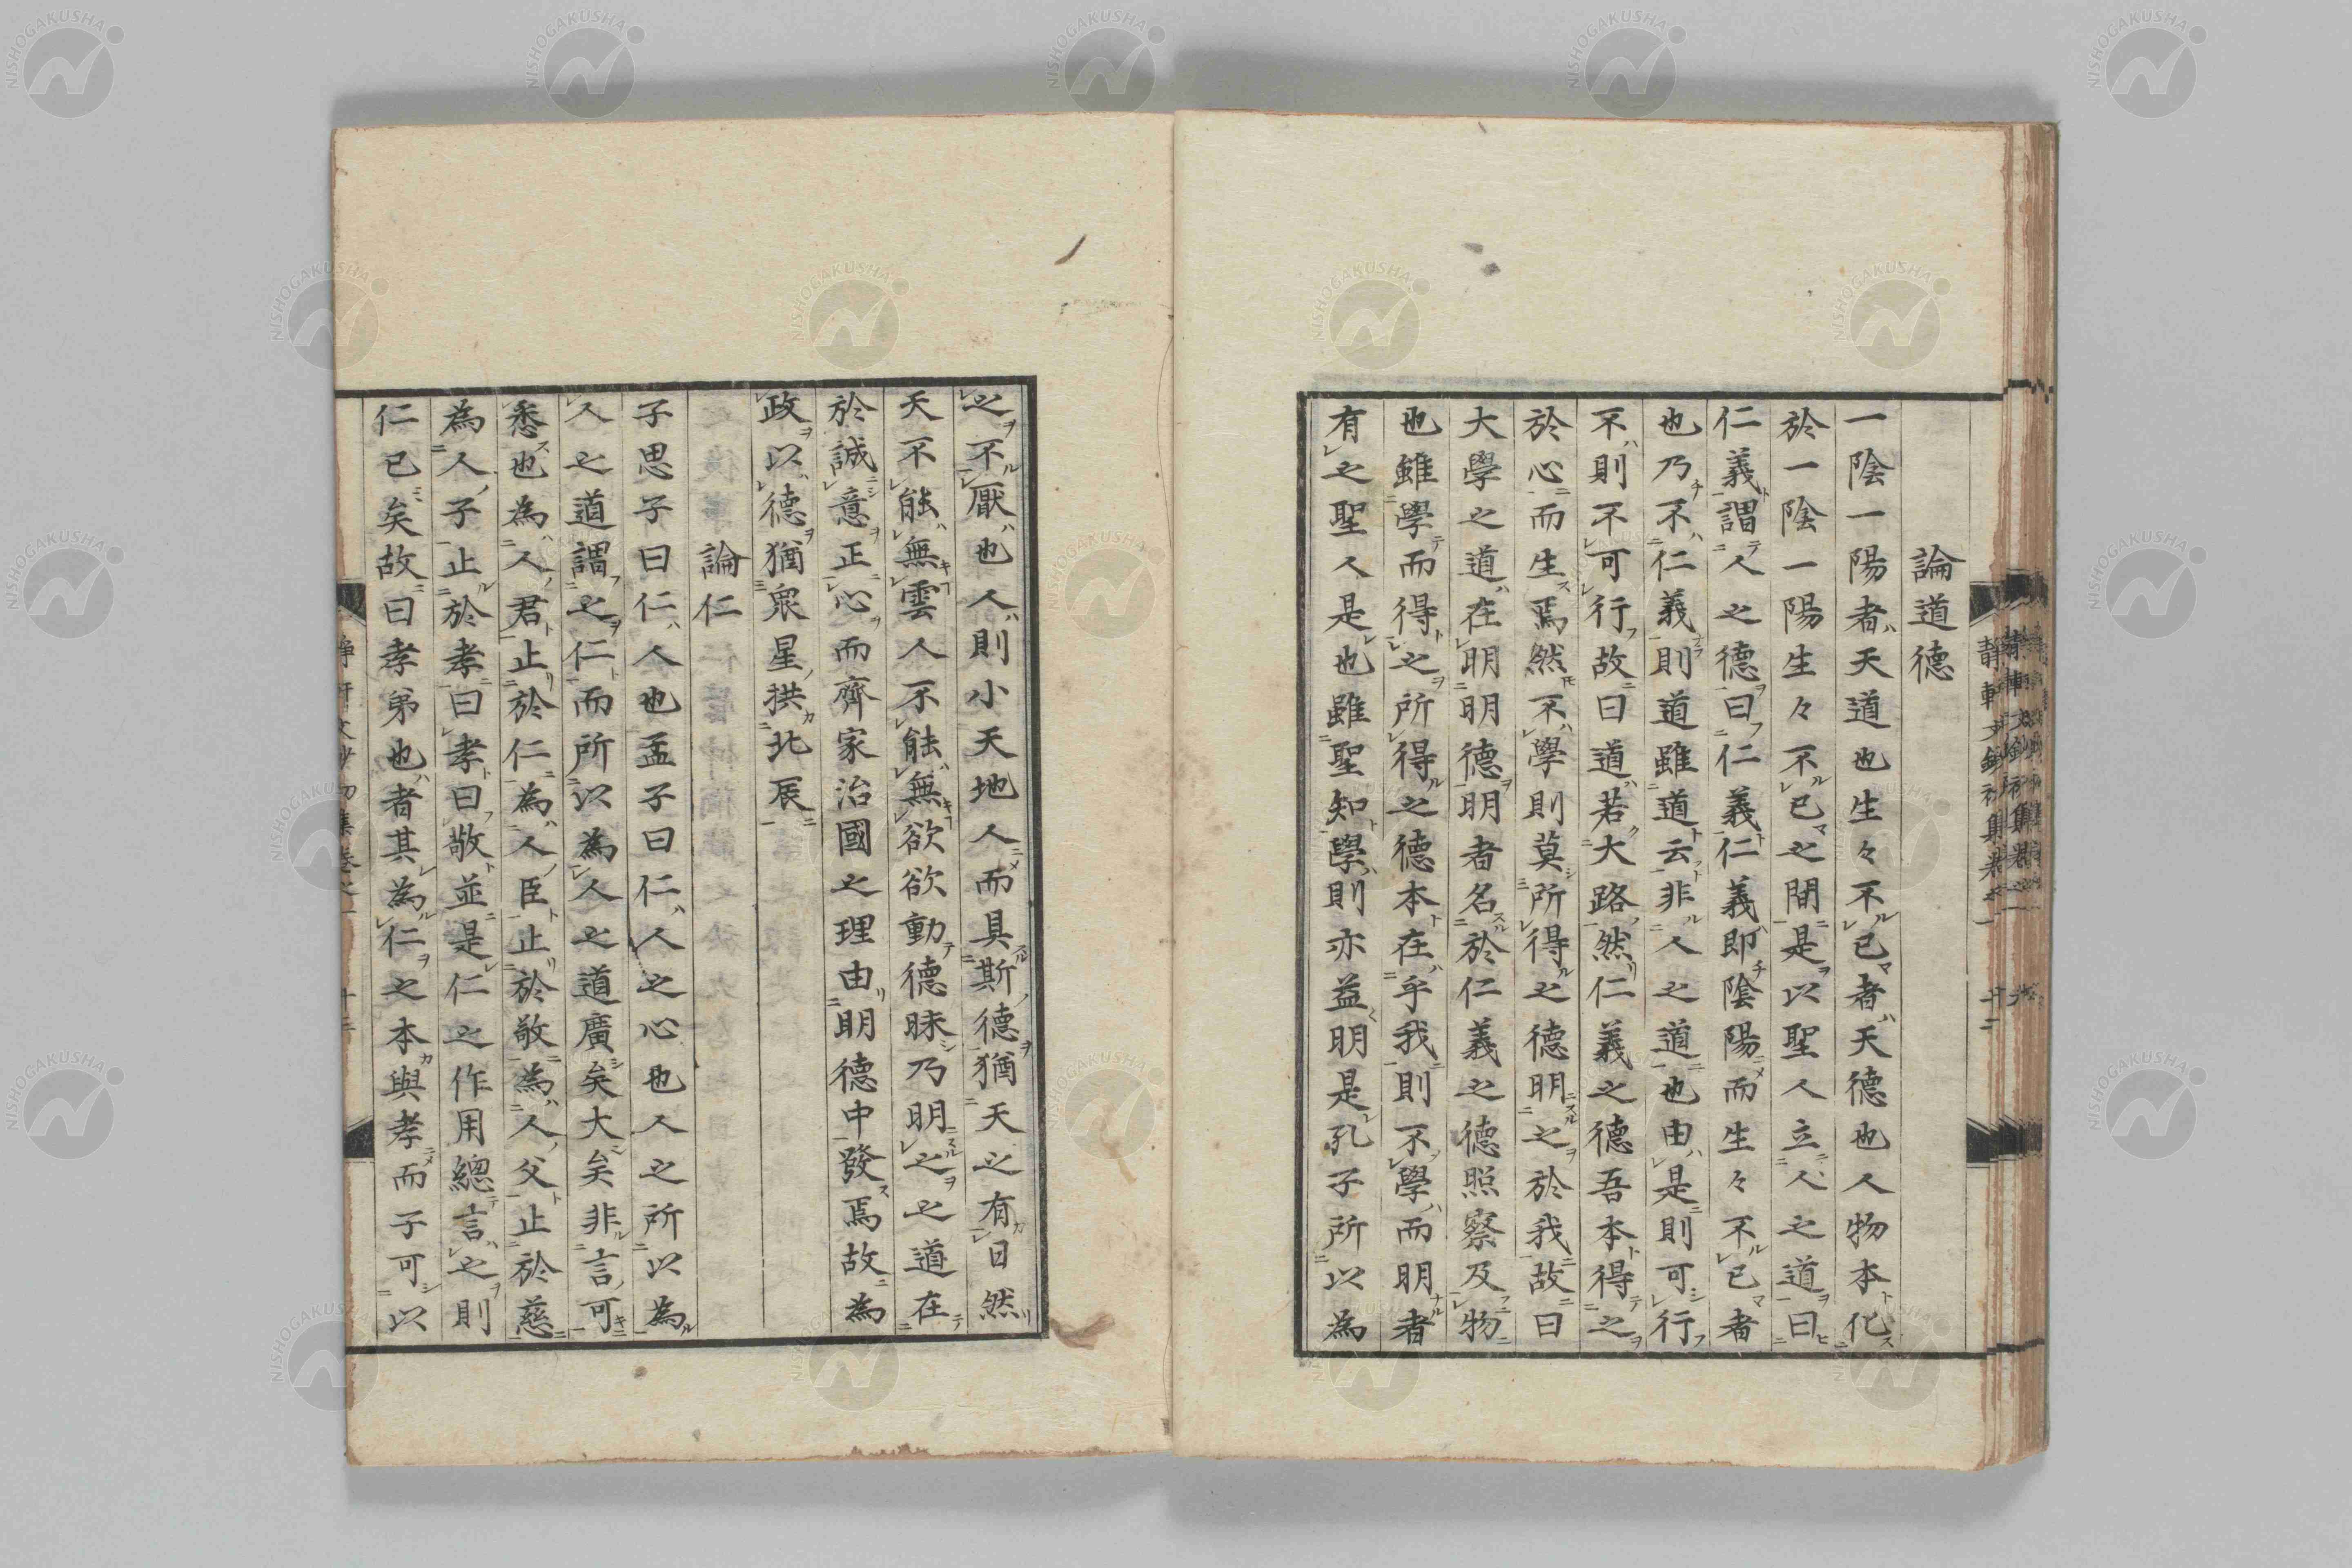 論道德
一陰一陽者天道也生々不已者天德也人物本化
於一陰一陽生々不已之間是以聖人立人之道曰
仁義謂人之德曰仁義仁義即陰陽而生々不已者
也乃不仁義則道雖道云非人之道也由是則可行
不則不可行故曰道若大路然仁義之德吾本得之
於心而生焉然不學則莫所得之德明之於我故曰
大學之道在明明德明者名於仁義之德照察及物
也雖學而得之所得之德本在乎我則不學而明者
有之聖人是也雖聖知學則亦益明是孔子所以為
之不厭也人則小天地人而具斯德猶天之有日然
天不能無雲人不能無欲欲動德昧乃明之之道在
於誠意正心而齊家治國之理由明德中發焉故為
政以德猶衆星拱北辰
論仁
子思子曰仁人也孟子曰仁人之心也人之所以為
人之道謂之仁而所以為人之道廣矣大矣非言可
悉也為人君止於仁為人臣止於敬為人父止於慈
為人子止於孝曰孝曰敬並是仁之作用總言之則
仁已矣故曰孝弟也者其為仁之本與孝而子可以
靜軒文鈔初集卷之一 十二
NISHOGAKUSHA